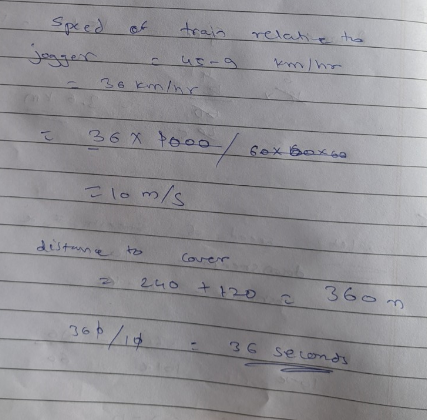 Speed of train relative to
jogger = 45-9 km/hr
= 36 km/hr
= 36 × 1000 / 60×60
= 10 m/s
distance to cover
= 240 + 120 = 360 m
360/10 = 36 seconds